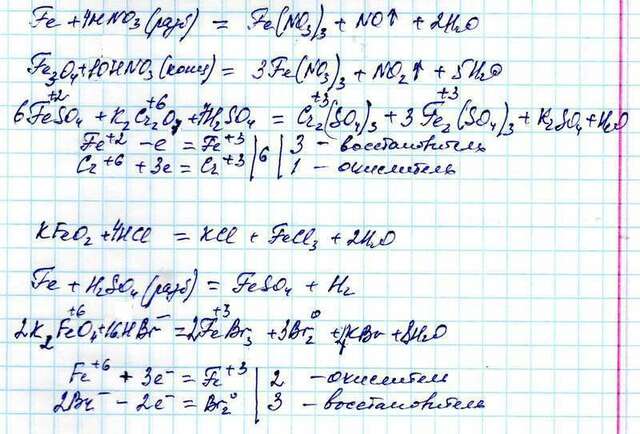 Fe + 4HNO3 (разб) = Fe(NO3)3 + NO↑ + 2H2O
Fe3O4 + 10HNO3 (конц) = 3Fe(NO3)3 + NO2↑ + 5H2O
+2 +6 +3 +3
6FeSO4 + K2Cr2O7 + 7H2SO4 = Cr2(SO4)3 + 3Fe2(SO4)3 + K2SO4 + H2O
Fe+2 - e = Fe+3 | 6 | 3 - восстановитель
Cr+6 + 3e = Cr+3 | 1 - окислитель
KFeO2 + 4HCl = KCl + FeCl3 + 2H2O
Fe + H2SO4 (разб) = FeSO4 + H2
+6 - +3 0
2K2FeO4 + 16HBr = 2FeBr3 + 3Br2 + 4KBr + 8H2O
Fe+6 + 3e- = Fe+3 | 2 - окислитель
2Br- - 2e- = Br2 0 | 3 - восстановитель